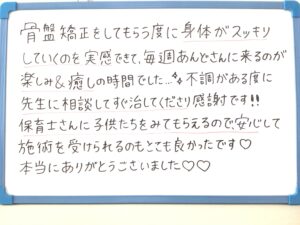 骨盤矯正をしてもらう度に身体がスッキリ
していくのを実感できて、毎週あんどさんに来るのが
楽しみ&癒しの時間でした…不調がある度に
先生に相談してすぐ治してくださり感謝です!!
保育士さんに子供たちをみてもらえるので、安心して
施術を受けられるのもとても良かったです♡
本当にありがとうございました♡♡